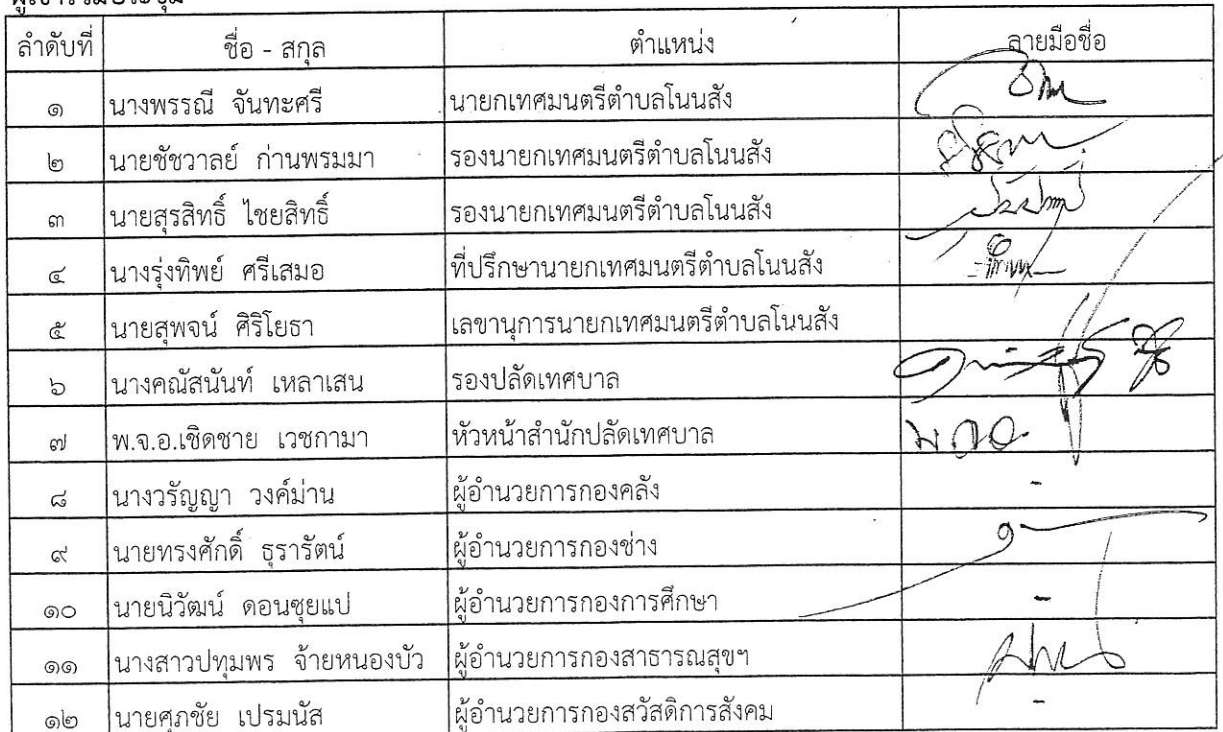 ผู้เข้าร่วมประชุม
ลำดับที่ ชื่อ - สกุล ตำแหน่ง ลายมือชื่อ
๑ นางพรรณี จันทะศรี นายกเทศมนตรีตำบลโนนสัง
๒ นายชัชวาลย์ ก่านพรมมา รองนายกเทศมนตรีตำบลโนนสัง
๓ นายสุรสิทธิ์ ไชยสิทธิ์ รองนายกเทศมนตรีตำบลโนนสัง
๔ นางรุ่งทิพย์ ศรีเสมอ ที่ปรึกษานายกเทศมนตรีตำบลโนนสัง
๕ นายสุพจน์ ศิริโยธา เลขานุการนายกเทศมนตรีตำบลโนนสัง
๖ นางคณัสนันท์ เหลาเสน รองปลัดเทศบาล
๗ พ.จ.อ.เชิดชาย เวชกามา หัวหน้าสำนักปลัดเทศบาล
๘ นางวรัญญา วงค์ม่าน ผู้อำนวยการกองคลัง -
๙ นายทรงศักดิ์ ธุรารัตน์ ผู้อำนวยการกองช่าง
๑๐ นายนิวัฒน์ ดอนซุยแป ผู้อำนวยการกองการศึกษา -
๑๑ นางสาวปทุมพร จ้ายหนองบัว ผู้อำนวยการกองสาธารณสุขฯ
๑๒ นายศุภชัย เปรมนัส ผู้อำนวยการกองสวัสดิการสังคม -